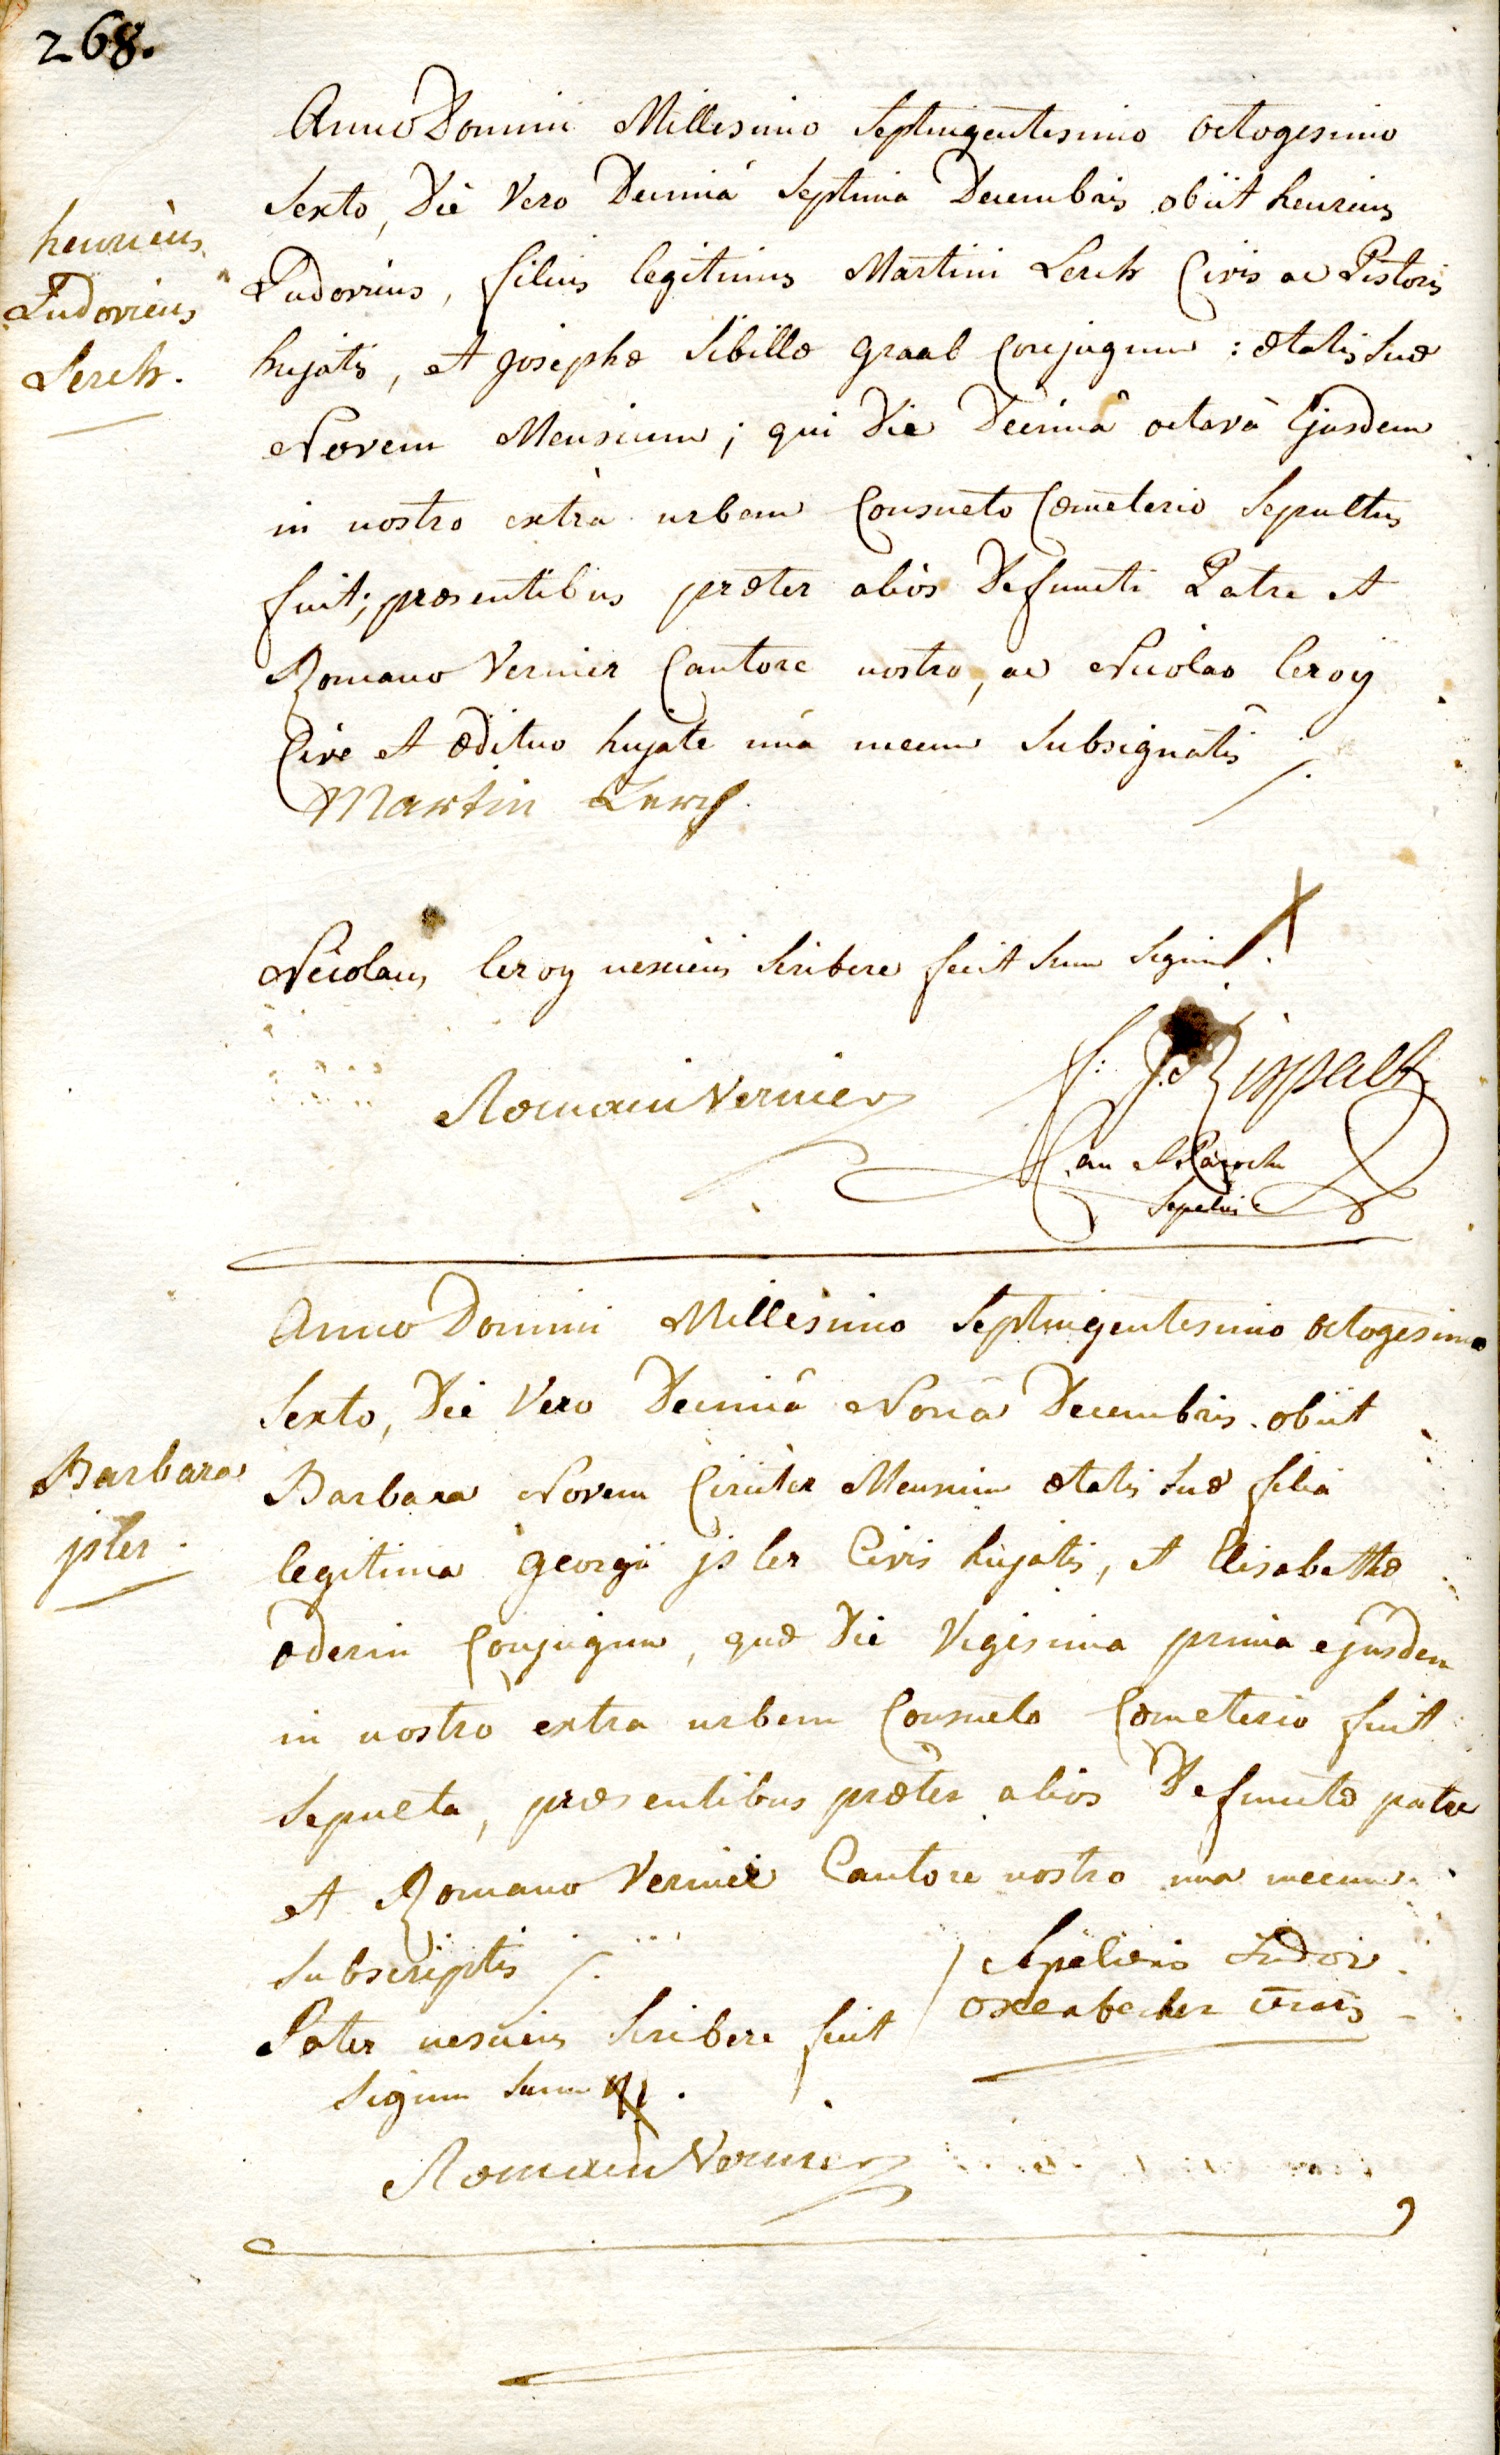 268.
Anno Domini Millesimo Septingentesimo octogesimo
Sexto, Die Vero Decimâ Septima Decembris obiit henricus
Ludovicus, filius legitimus Martini Lerch Civis ac Pistoris
hujatis, et Josephæ Sibillæ graab Conjugum : ætatis suæ
Novem Mensium ; qui Die Decimâ octavâ Ejusdem
in nostro extra urbem Consueto Cœmeterio Sepultus
fuit ; præsentibus præter alios Defuncti Patre et
Romano Vernier Cantore nostro, ac Nicolao leroy
Cive et ædituo hujate unà mecum Subsignatis ⁒
henricus
Ludovicus
Lerch.
Martin Lerch
Nicolaus leroy nesciens Scribere fecit suum Signum X.
Romain Vernier
Can et Paroch
Sepelivi
Anno Domini Millesimo Septingentesimo octogesimo
Sexto, Die Vero Decimâ Nonâ Decembris obiit
Barbara Novem Circiter Mensium ætatis suæ filia
legitima georgii jsler Civis hujatis, et Elisabethæ
oderin Conjugum, quæ Die Vigesima prima ejusdem
in nostro extra urbem Consueto Cœmeterio fuit
Sepulta, præsentibus præter alios Defunctæ patre
et Romano Vernier Cantore nostro una mecum
Subscriptis ⁒
Barbara
jsler.
Pater nesciens Scribere fecit
Signum suum
Romain Vernier